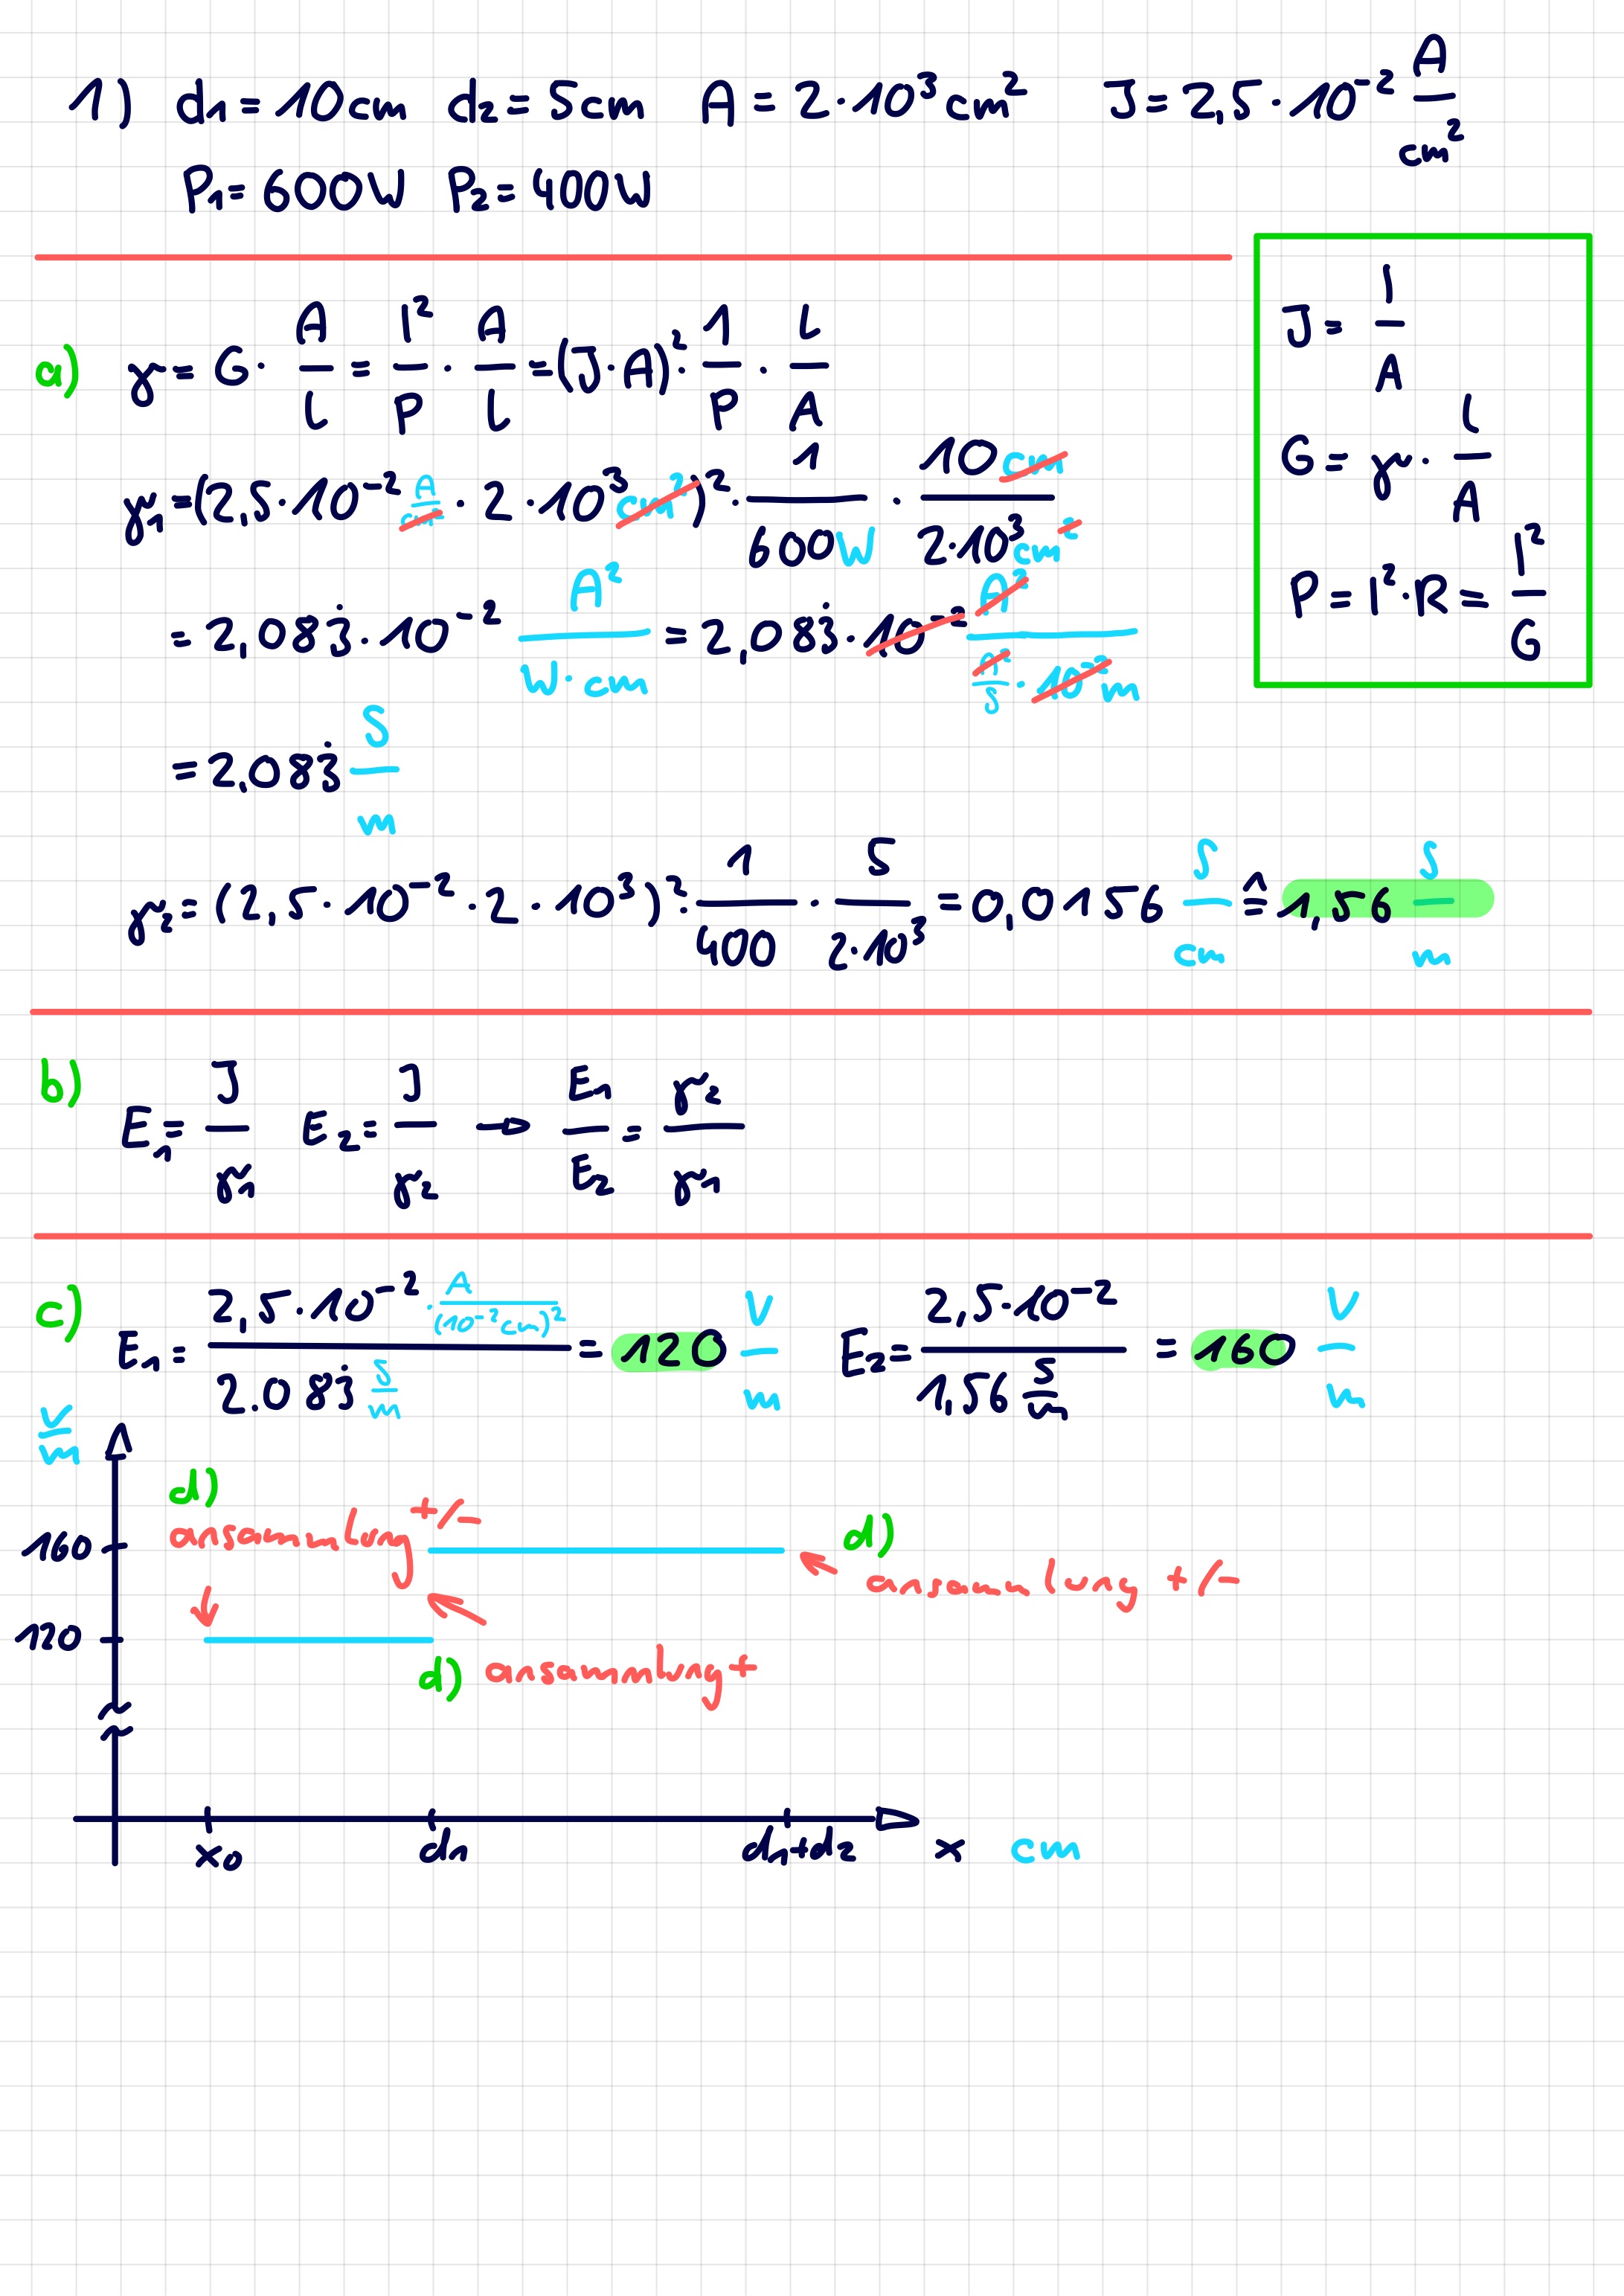 1) d₁ = 10cm d₂ = 5cm A = 2·10³cm² J = 2,5·10⁻² A/cm²
P₁ = 600W P₂ = 400W
J = I/A
G = γ · l/A
P = I²·R = I²/G
a) γ = G · A/l = I²/P · A/l = (J·A)² · 1/P · l/A
γ₁ = (2,5·10⁻² A/cm² · 2·10³cm²)² · 1/600W · 10cm/2·10³cm²
= 2,083̇·10⁻² A²/W·cm = 2,083̇·10⁻² A²/(A²/S · 10⁻²m)
= 2,083̇ S/m
γ₂ = (2,5·10⁻²·2·10³)² · 1/400 · 5/2·10³ = 0,0156 S/cm ≙ 1,56 S/m
b) E₁ = J/γ₁ E₂ = J/γ₂ → E₁/E₂ = γ₂/γ₁
c) E₁ = 2,5·10⁻² · A/(10⁻²cm)² / 2.083̇ S/m = 120 V/m E₂ = 2,5·10⁻² / 1,56 S/m = 160 V/m
V/m
d)
ansammlung +/-
160
d)
ansammlung +/-
120
d) ansammlung +
x₀ d₁ d₁+d₂ x cm